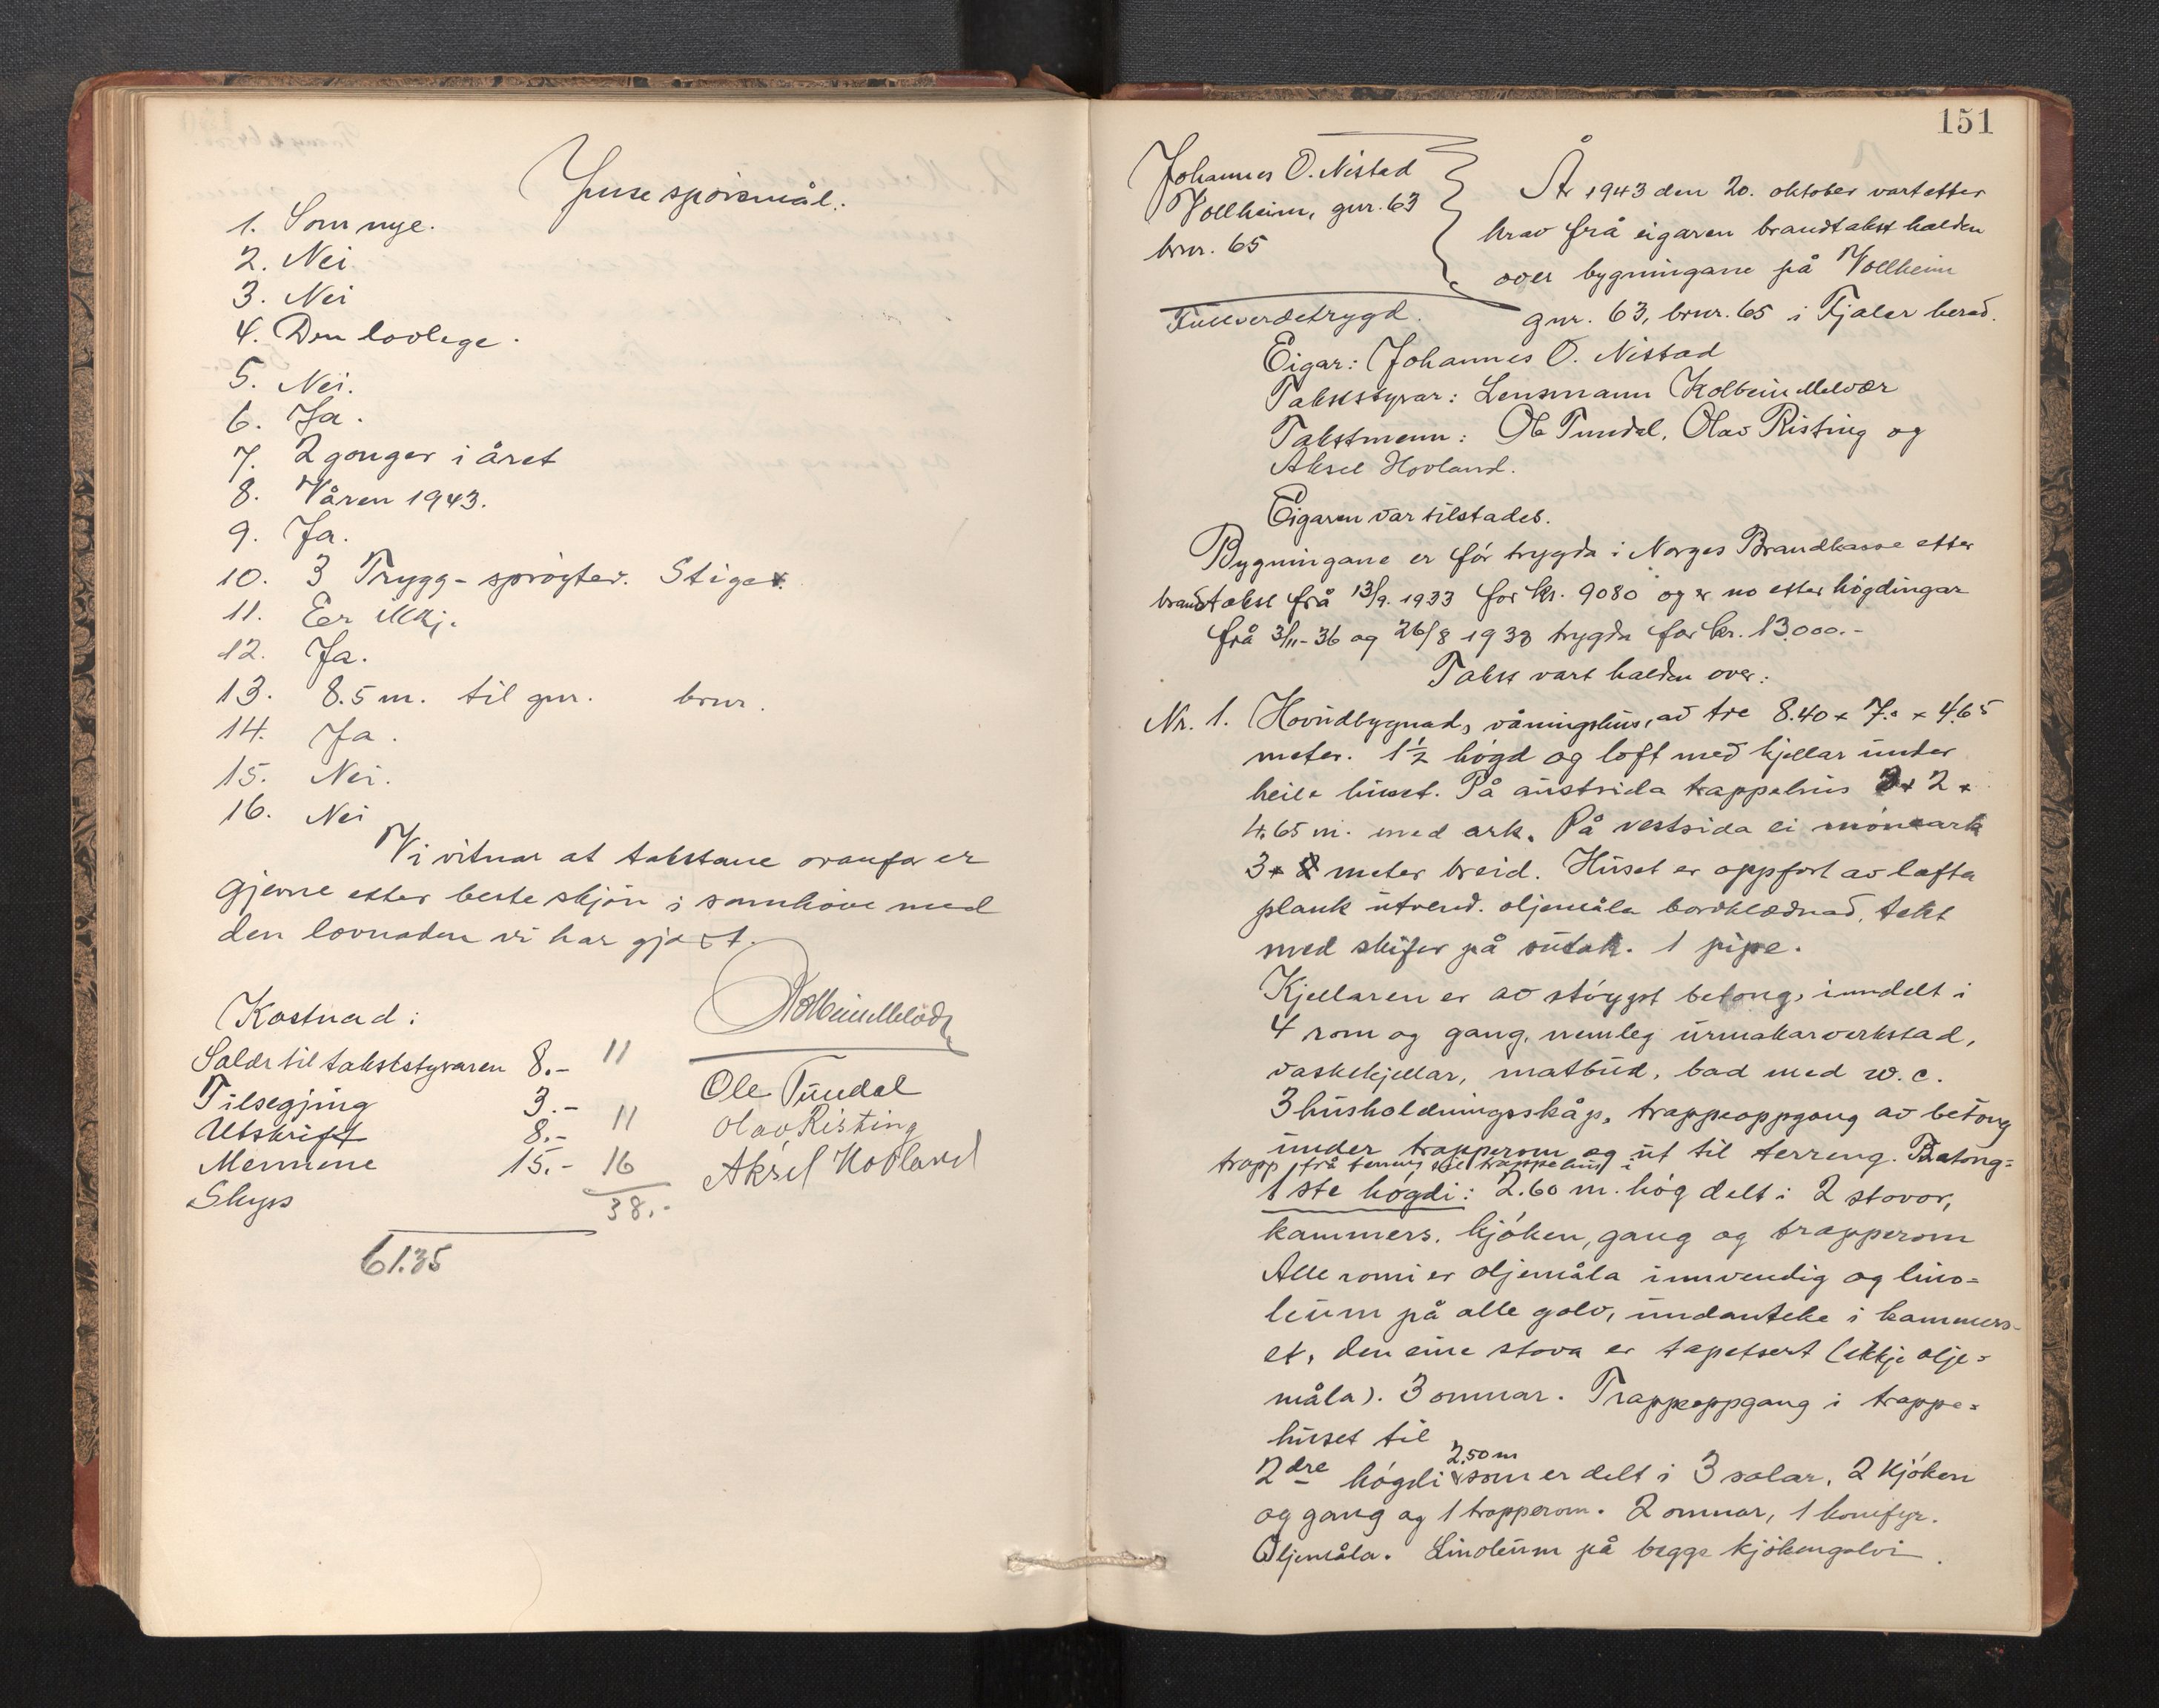 Ymse spörsmål:
1. Som nye.
2. Nei
3. Nei
4. Den lovlege.
5. Nei.
6. Ja.
7. 2 gonger i året
8. Våren 1943.
9. Ja.
10. 3 Trygg-sprøyter. Stigar.
11. Er ikkj.
12. Ja.
13. 8.5 m. til gnr. bnr.
14. Ja.
15. Nei.
16. Nei
Vi vitnar at takstane ovanfor er
gjevne etter beste skjön i samhöve med
den lovnaden vi har gjort.
Kostnad:
Kolbein Melvær
Salær til takststyraren 8.- 11
Tilsegjing 3.-
Utskrift 8.- 11
Mennene 15.- 16
Skyss 38.-
61.35
Ole Tundal
Olav Risting
Aksel Hovland
151
Johannes O. Nistad
Vollheim, gnr. 63
bnr. 65
Fullverdetrygd.
År 1943 den 20. oktober vart etter
krav frå eigaren brandtakst halden
over bygningane på Vollheim
gnr. 63, bnr. 65 i Fjaler herad.
Eigar: Johannes O. Nistad
Takststyrar: Lensmann Kolbein Melvær
Takstmenn: Ole Tundal, Olav Risting og
Aksel Hovland.
Eigaren var tilstades.
Bygningane er för trygda i Norges Brandkasse etter
brandtakst frå 13/9. 1933 for kr. 9080 og er no etter högdingar
frå 3/11-36 og 26/8 1938 trygda for kr. 13.000.-
Takst vart halden over:
Nr. 1. Hovudbygnad, våningshus, av tre 8.40 x 7.0 x 4.65
meter. 1½ högd og loft med kjellar under
heile huset. På austsida trappehus 3 x 2 x
4.65 m. med ark. På vestsida ei möneark
3 x meter breid. Huset er oppfört av lafta
plank utvend. oljemåla bordklædnad, tekt
med skifer på sutak. 1 pipe.
Kjellaren er av stöypt betong, inndelt i
4 rom og gang, nemleg urmakarverkstad,
vaskekjellar, matbud, bad med w.c.
3 husholdningsskåp, trappeoppgang av betong
under trapperom og ut til terreng. Betong=
trapp frå terreng til trappehus i
1ste högdi: 2.60 m. hög delt i 2 stovor,
kammers, kjöken, gang og trapperom
Alle romi er oljemåla innvendig og lino=
leum på alle golv, undanteke i kammers-
et, den eine stova er tapetsert (ikkje olje=
måla). 3 omnar. Trappeoppgang i trappe=
huset til
2dre högdi 2.50 m som er delt i 3 salar, 2 kjöken
og gang og 1 trapperom. 2 omnar, 1 komfyr.
Oljemåla. Linoleum på begge kjökengolvi.